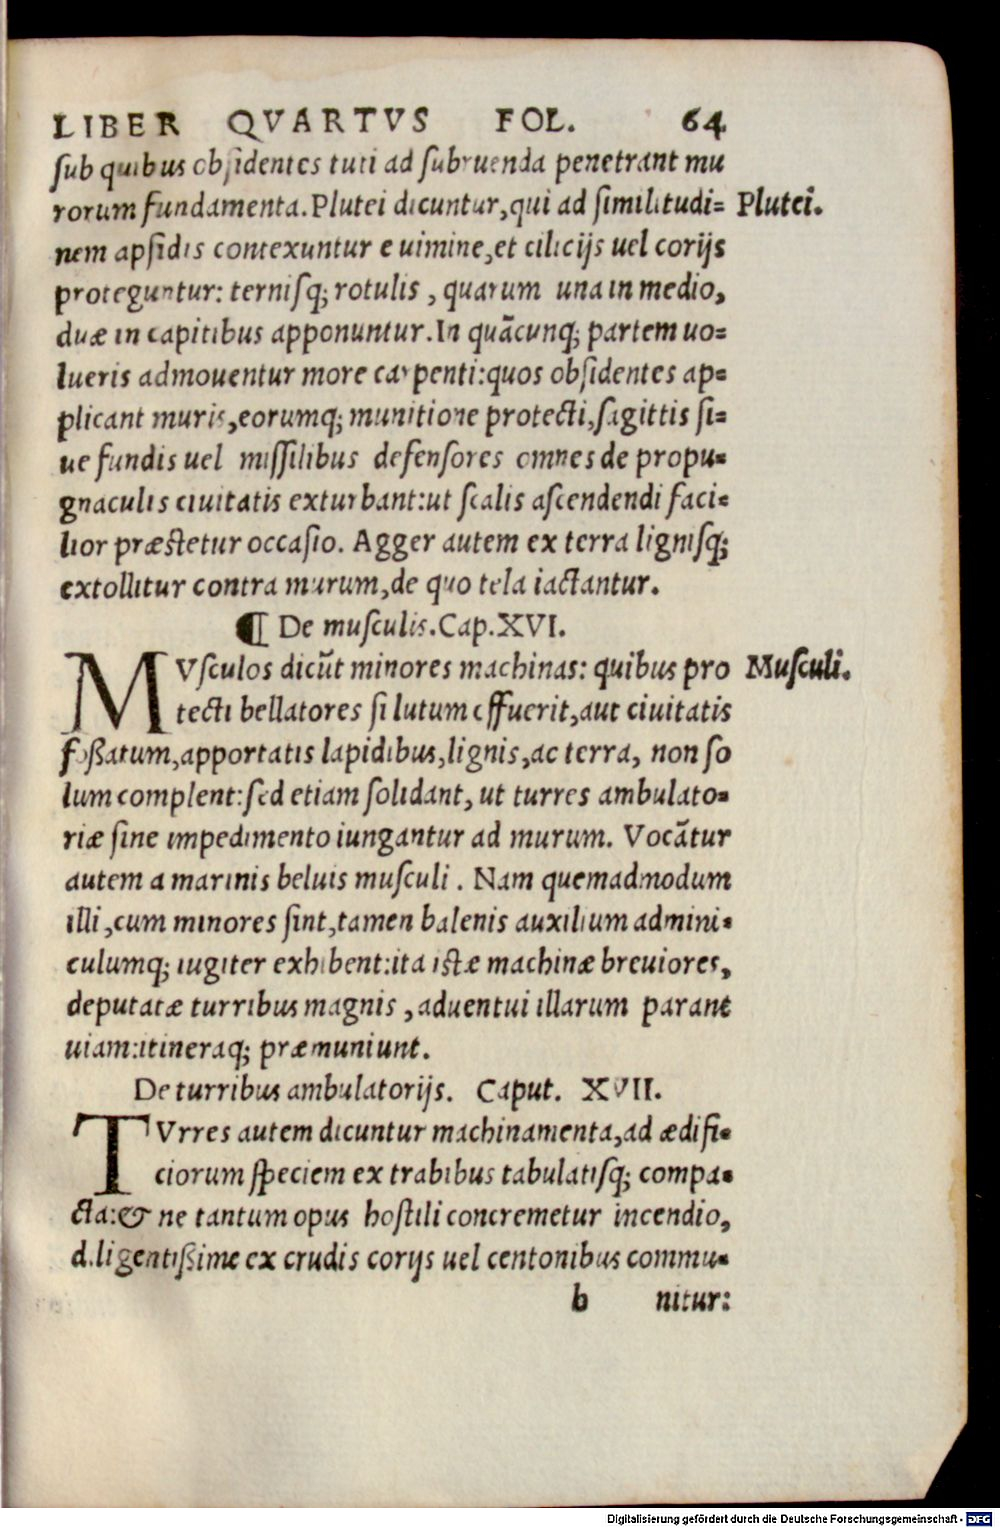 LIBER QVARTVS FOL. 64
ſub quibus obſidentes tuti ad ſubruenda penetrant mu
rorum fundamenta. Plutei dicuntur, qui ad ſimilitudi= Plutei.
nem apſidis contexuntur e uimine, et cilicijs uel corijs
proteguntur: terniſq; rotulis, quarum una in medio,
duæ in capitibus apponuntur. In quãcunq; partem uo=
lueris admouentur more carpenti: quos obſidentes ap=
plicant muris, eorumq; munitione protecti, ſagittis ſi=
ue fundis uel miſſilibus defenſores omnes de propu=
gnaculis ciuitatis exturbant: ut ſcalis aſcendendi faci=
lior præſtetur occaſio. Agger autem ex terra ligniſq;
extollitur contra murum, de quo tela iactantur.
¶ De muſculis. Cap. XVI.
MVſculos dicũt minores machinas: quibus pro Muſculi.
tecti bellatores ſi lutum effuerit, aut ciuitatis
foßatum, apportatis lapidibus, lignis, ac terra, non ſo
lum complent: ſed etiam ſolidant, ut turres ambulato=
riæ ſine impedimento iungantur ad murum. Vocãtur
autem a marinis beluis muſculi. Nam quemadmodum
illi, cum minores ſint, tamen balenis auxilium admini=
culumq; iugiter exhibent: ita iſtæ machinæ breuiores,
deputatæ turribus magnis, aduentui illarum parant
uiam: itineraq; præmuniunt.
De turribus ambulatorijs. Caput. XVII.
TVrres autem dicuntur machinamenta, ad ædifi=
ciorum ſpeciem ex trabibus tabulatiſq; compa=
cta: & ne tantum opus hoſtili concremetur incendio,
diligentißime ex crudis corijs uel centonibus commu=
b nitur:
Digitalisierung gefördert durch die Deutsche Forschungsgemeinschaft - DFG